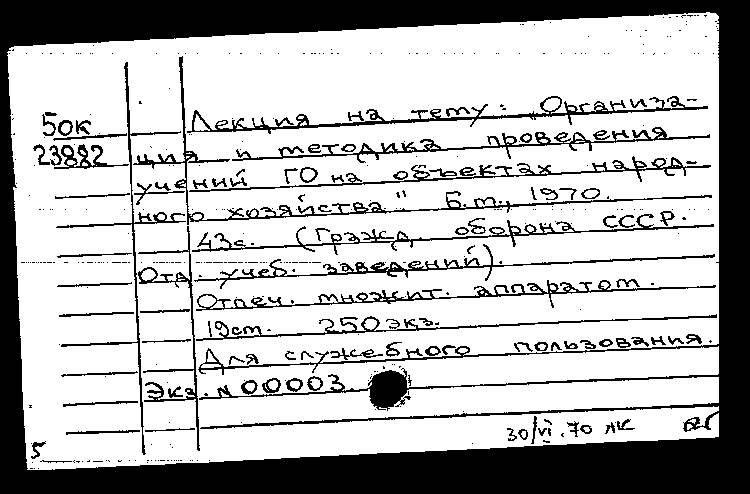 50к Лекция на тему: „Организа-
23882 ция и методика проведения
учений ГО на объектах народ-
ного хозяйства" Б.м., 1970.
43с. (Гражд. оборона СССР.
Отд. учеб. заведений).
Отпеч. множит. аппаратом.
19см. 250экз.
Для служебного пользования.
Экз. N 00003.
5 30/VI.70